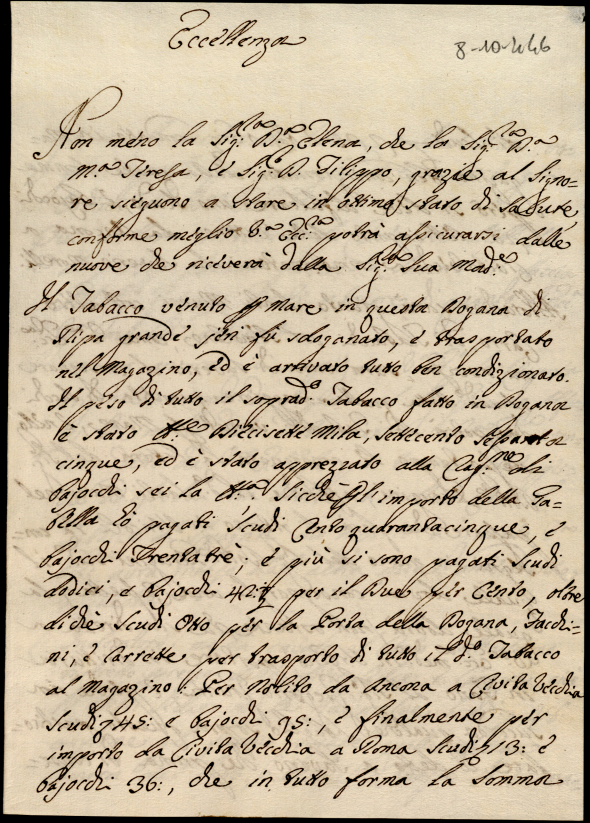 Eccellenza
8-10-446
Non meno la Sig.ra D.a Elena, che la Sig.ra D.a
M.a Teresa, e Sig.r D. Filippo, grazie al Signo-
re sieguono a stare in ottimo stato di salute,
conforme meglio V.a Ecc.za potrà assicurarsi dalle
nuove che riceverà dalla Sig.a Sua Mad.e
Il Tabacco venuto p mare in questa Dogana di
Ripa grande jeri fù sdoganato, e trasportato
nel Magazino, ed è arrivato tutto ben condizionato.
Il peso di tutto il soprad.o Tabacco fatto in Dogana
è stato tt.e Diecisette Mila, settecento
cinque, ed è stato apprezzato alla di
bajocchi sei la tt.a sicchè p l'importo della Ga-
bella ò pagati scudi Cento quarantacinque, e
bajocchi Trentatrè; e più si sono pagati scudi
dodici, e bajocchi 42 per il Due per Cento, oltre
di chè scudi Otto per la Porta della Dogana, Facchi-
ni, e Carrette per trasporto di tutto il d.o Tabacco
al Magazino: Per Nolito da Ancona a Civita Vecchia
scudi 745: e bajocchi 95:, e finalmente per
importo da Civita Vecchia a Roma scudi 13: e
bajocchi 36:, che in tutto forma la somma